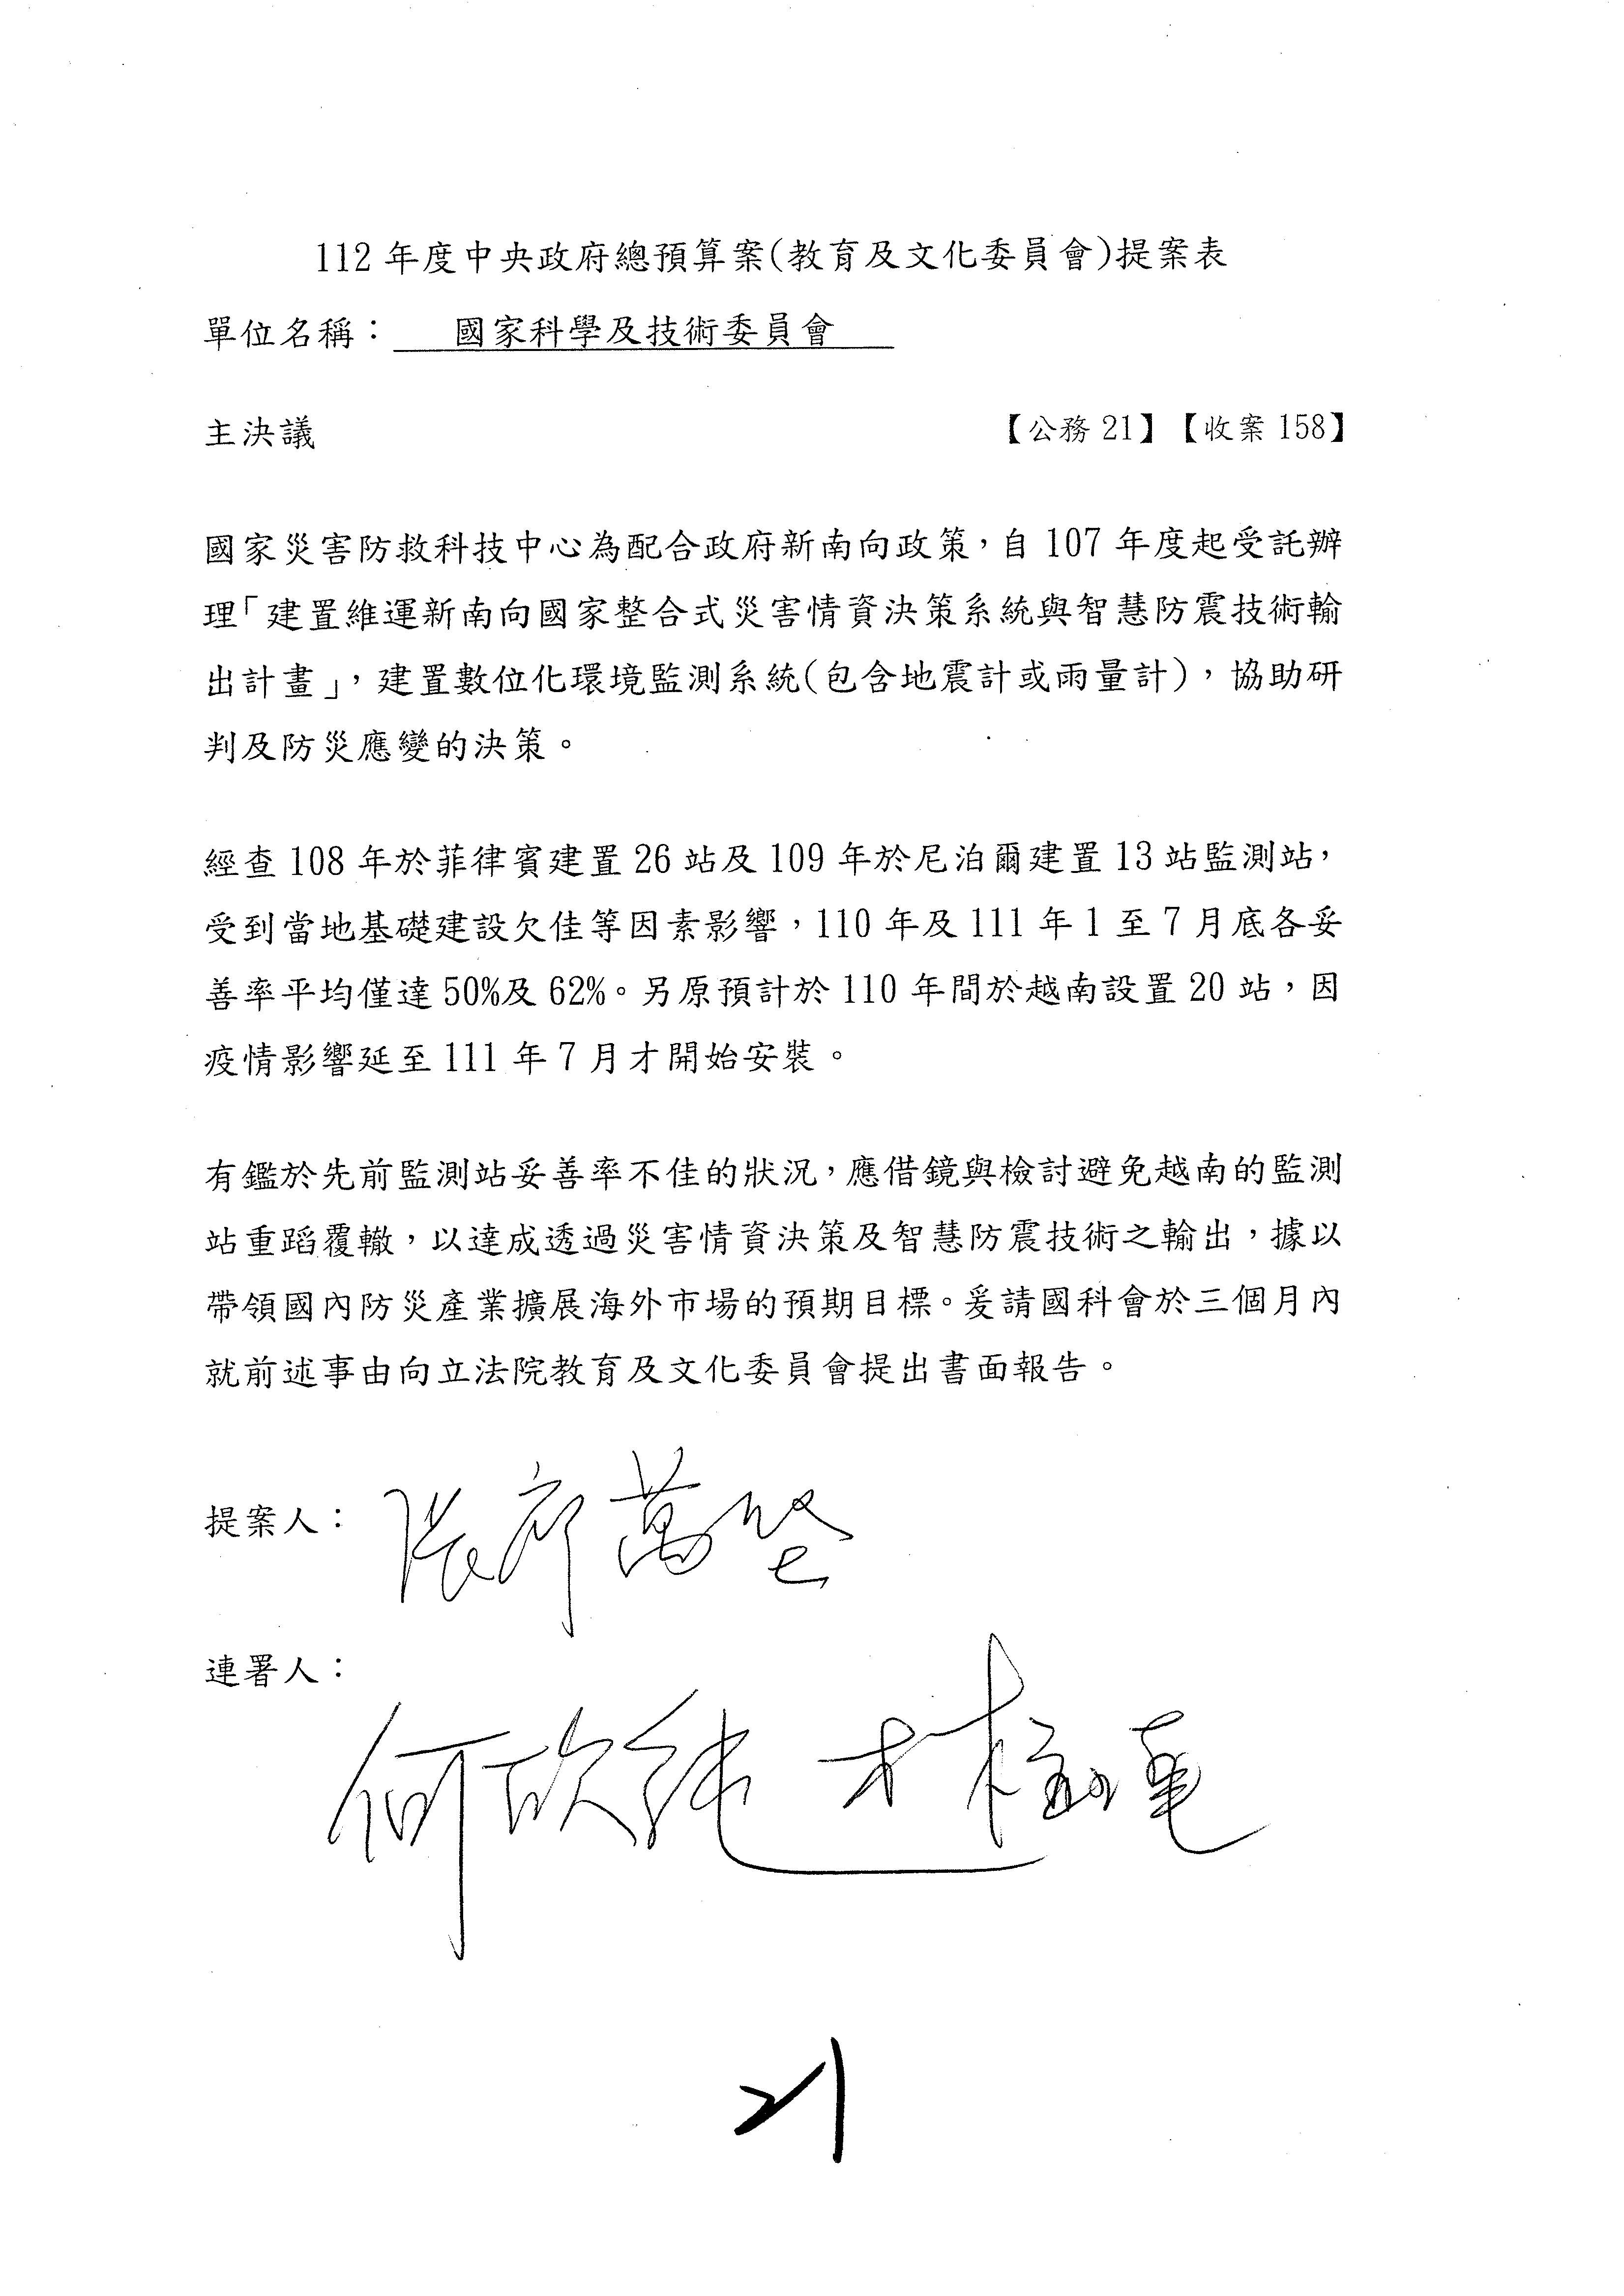 112年度中央政府總預算案(教育及文化委員會)提案表
單位名稱： 國家科學及技術委員會
主決議 【公務21】【收案158】
國家災害防救科技中心為配合政府新南向政策，自107年度起受託辦
理「建置維運新南向國家整合式災害情資決策系統與智慧防震技術輸
出計畫」，建置數位化環境監測系統(包含地震計或雨量計)，協助研
判及防災應變的決策。
經查108年於菲律賓建置26站及109年於尼泊爾建置13站監測站，
受到當地基礎建設欠佳等因素影響，110年及111年1至7月底各妥
善率平均僅達50%及62%。另原預計於110年間於越南設置20站，因
疫情影響延至111年7月才開始安裝。
有鑑於先前監測站妥善率不佳的狀況，應借鏡與檢討避免越南的監測
站重蹈覆轍，以達成透過災害情資決策及智慧防震技術之輸出，據以
帶領國內防災產業擴展海外市場的預期目標。爰請國科會於三個月內
就前述事由向立法院教育及文化委員會提出書面報告。
提案人： 張廖萬堅
連署人：
何欣純
21